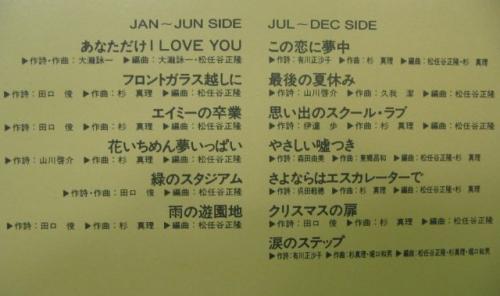 JAN～JUN SIDE
あなただけI LOVE YOU
▶作詩・作曲：大瀧詠一 ▶編曲：大瀧詠一・松任谷正隆
フロントガラス越しに
▶作詩：田口 俊 ▶作曲：杉 真理 ▶編曲：松任谷正隆
エイミーの卒業
▶作詩：田口 俊 ▶作曲：杉 真理 ▶編曲：松任谷正隆
花いちめん夢いっぱい
▶作詩：山川啓介 ▶作曲：杉 真理 ▶編曲：松任谷正隆
緑のスタジアム
▶作詩・作曲：田口 俊 ▶編曲：松任谷正隆
雨の遊園地
▶作詩：田口 俊 ▶作曲：杉 真理 ▶編曲：松任谷正隆
JUL～DEC SIDE
この恋に夢中
▶作詩：有川正沙子 ▶作曲：杉 真理 ▶編曲：松任谷正隆・杉 真理
最後の夏休み
▶作詩：山川啓介 ▶作曲：久我 潔 ▶編曲：松任谷正隆
思い出のスクール・ラブ
▶作詩：伊達 歩 ▶作曲：杉 真理 ▶編曲：松任谷正隆
やさしい嘘つき
▶作詩：森田由美 ▶作曲：東郷昌和 ▶編曲：松任谷正隆・杉 真理
さよならはエスカレーターで
▶作詩：呉田軽穂 ▶作曲：杉 真理 ▶編曲：松任谷正隆
クリスマスの扉
▶作詩：田口 俊 ▶作曲：杉 真理 ▶編曲：松任谷正隆
涙のステップ
▶作詩：有川正沙子 ▶作曲：杉真理・堀口和男 ▶編曲：松任谷正隆・杉真理・堀口和男